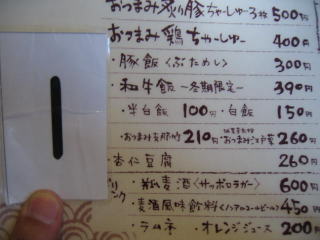 おつまみ炙り豚ちゃーしゅー3枚 500円
おつまみ鶏ちゃーしゅー 400円
・豚飯(ぶためし) 300円
・和牛飯 ~冬期限定~ 390円
・半白飯 100円・白飯 150円
・おつまみ支那竹 210円・おつまみ 260円
・杏仁豆腐 260円
ドリンク ・瓶麦酒<サッポロラガー> 600円
・麦酒風味飲料<ノンアルコールビール> 450円
・ラムネ ・オレンジジュース 200円